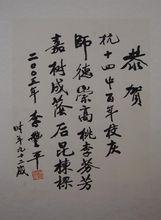 恭贺
杭十四中百年校庆
師德崇高桃李芬芳
嘉树成蔭后昆棟樑
二〇〇三年 李豐平
时年九十二歲